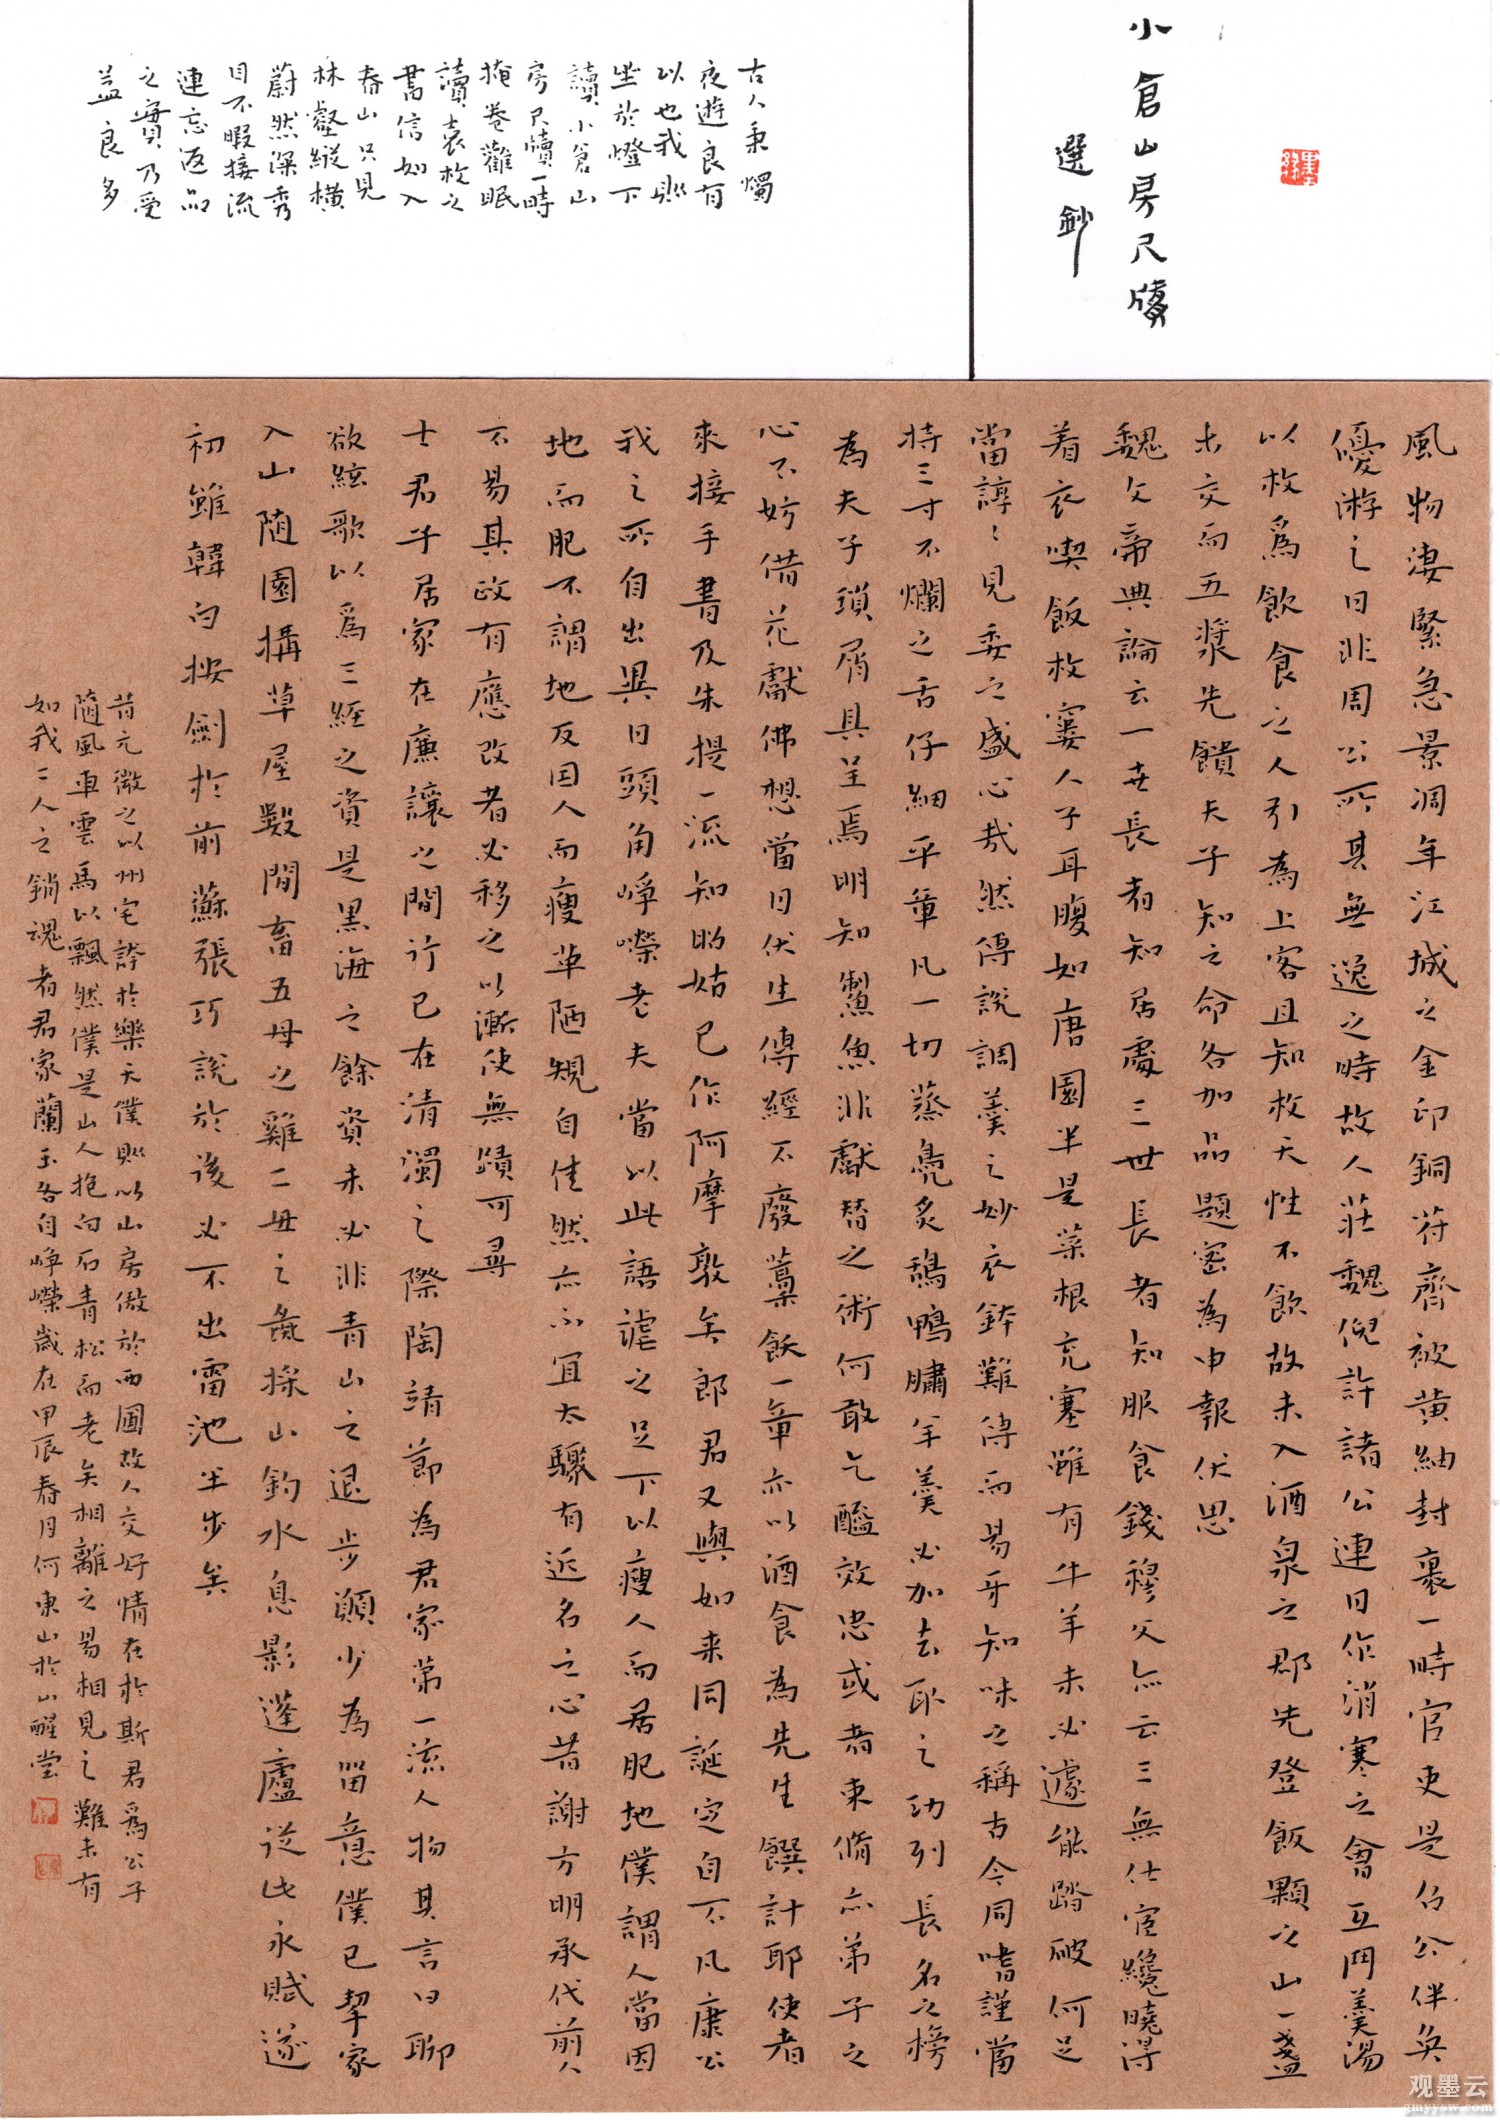 小倉山房尺牘
選鈔
古人秉燭
夜遊良有
以也我則
坐於燈下
讀小倉山
房尺牘一時
掩卷難眠
讀袁枚之
書信如入
春山只見
林壑縱橫
蔚然深秀
目不暇接流
連忘返品
之實乃受
益良多
風物淒緊急景凋年江城之金印銅符齊被黄紬封裹一時官吏是召公伴奐
優游之日非周公所其無逸之時故人莊魏倪許諸公連日作消寒之會互鬥羹湯
以枚爲飲食之人引為上客且知枚天性不飲故未入酒泉之郡先登飯顆之山一盞
未交而五漿先饋夫子知之命各加品題密為申報伏思
魏文帝典論云一世長者知居處三世長者知服食錢穆父亦云三無仕宦纔曉得
着衣喫飯枚窶人子耳腹如唐園半是菜根充塞雖有牛羊未必遽能踏破何足
當諄諄見委之盛心哉然傳説調羹之妙衣鉢難傳而易牙知味之稱古今同嗜謹當
持三寸不爛之舌仔細平章凡一切蒸鳧炙鴰鴨臛羊羹必加去取之功列長名之榜
為夫子瑣屑具呈焉明知鯗魚非獻替之術何敢乞醯效忠或者束脩亦弟子之
心不妨借花獻佛想當日伏生傳經不廢藁飫一章亦以酒食為先生饌計耶使者
來接手書及朱提一流知昀姑已作阿摩敦矣郎君又與如来同誕定自不凡康公
我之所自出異日頭角崢嶸老夫當以此語謔之足下以瘦人而居肥地僕謂人當因
地而肥不謂地反因人而瘦革陋規自佳然亦不宜太驟有近名之心昔謝方明承代前人
不易其政有應改者必移之以漸使無蹟可尋
士君子居家在廉讓之間行已在清濁之際陶靖節為君家第一流人物其言曰聊
欲絃歌以爲三經之資是黑海之餘資未必非青山之退步願少為留意僕已挈家
入山随園搆草屋數間畜五母之雞二母之彘採山釣水息影蓬廬從此永賦遂
初雖韓白按劍於前蘇張巧説於後必不出雷池半步矣
昔元微之以州宅誇於樂天僕則以山房傲於西圃故人交好情在於斯君爲公子
隨風車雲馬以飄然僕是山人抱白石青松而老矣相離之易相見之難未有
如我二人之銷魂者君家蘭玉各自崢嶸歲在甲辰春月何東山於山醒堂
观墨云
gmyysw.com